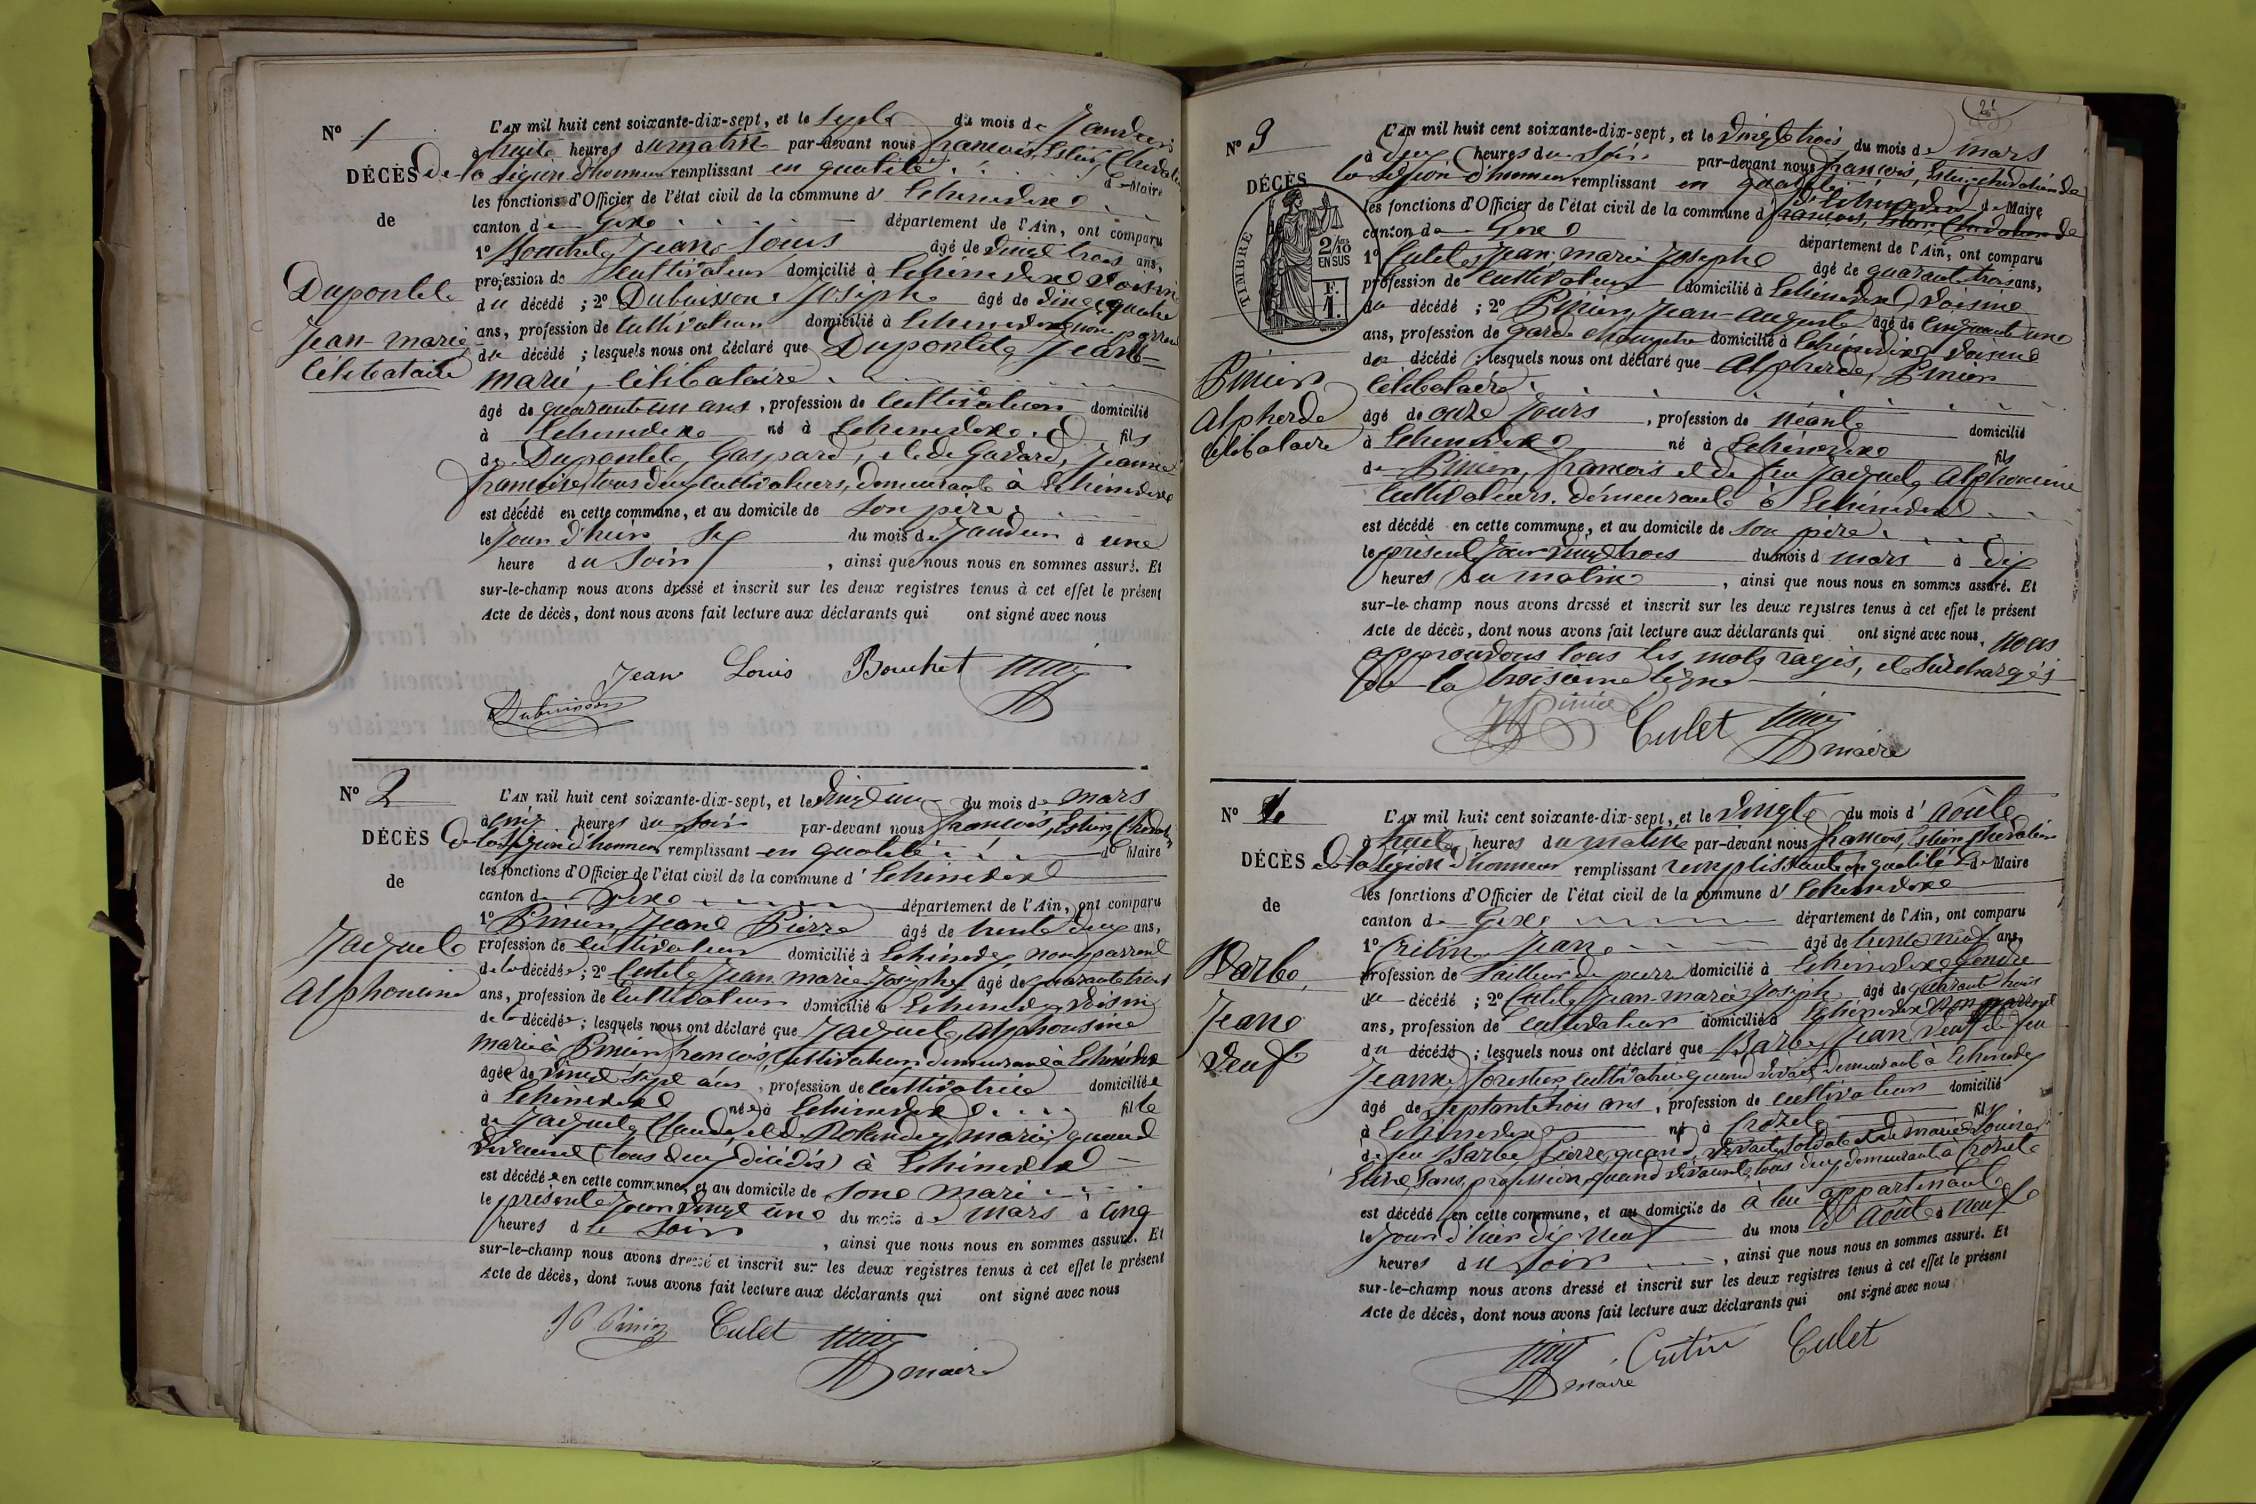 N° 1
DÉCÈS
de
Dupontet
Jean-marie
Célibataire
L'AN mil huit cent soixante-dix-sept, et le sept du mois de Janvier
à huit heures du matin par-devant nous françois, Estier, Chevalier
De la Légion d'honneur remplissant en qualité de Maire
les fonctions d'Officier de l'état civil de la commune d' Echenevex
canton de Gex département de l'Ain, ont comparu
1° Bouchet Jean Louis âgé de vingt trois ans,
profession de Cultivateur domicilié à Echenevex Voisin
du décédé ; 2° Dubuisson Joseph âgé de vingt quatre
ans, profession de Cultivateur domicilié à Echenevex non parrent
du décédé ; lesquels nous ont déclaré que Dupontet Jean-
marie, célibataire
âgé de quarante un ans, profession de Cultivateur domicilié
à Echenevex né à Echenevex fils
de Dupontet, Gaspard, et de Gavard, Jeanne
françoise, tous deux cultivateurs, demeurant à Echenevex
est décédé en cette commune, et au domicile de son père
le Jour d'hier six du mois de Janvier à une
heure du Soir, ainsi que nous nous en sommes assuré. Et
sur-le-champ nous avons dressé et inscrit sur les deux registres tenus à cet effet le présent
Acte de décès, dont nous avons fait lecture aux déclarants qui ont signé avec nous
Jean Louis Bouchet
Dubuisson
N° 2
DÉCÈS
de
Jaquet
Alphonsine
L'AN mil huit cent soixante-dix-sept, et le vingt un du mois de mars
à cinq heures du Soir par-devant nous françois, Estier, Chevalier
De la Légion d'honneur remplissant en qualité de Maire
les fonctions d'Officier de l'état civil de la commune d' Echenevex
canton de Gex département de l'Ain, ont comparu
1° Pinier Jean Pierre âgé de trente deux ans,
profession de cultivateur domicilié à Echenevex non parrent
de la décédée ; 2° Culet Jean marie Joseph âgé de quarante trois
ans, profession de Cultivateur domicilié à Echenevex Voisin
de la décédée ; lesquels nous ont déclaré que Jaquet, alphonsine
mariée à Pinier françois, cultivateur demeurant à Echenevex
âgée de vingt sept ans, profession de cultivatrice domiciliée
à Echenevex née à Echenevex fille
de Jaquet Claude, et de Rolandez, marie, quand
vivaient (tous deux décédés) à Echenevex
est décédée en cette commune, et au domicile de son mari
le présent jour vingt une du mois de mars à cinq
heures du Soir, ainsi que nous nous en sommes assuré. Et
sur-le-champ nous avons dressé et inscrit sur les deux registres tenus à cet effet le présent
Acte de décès, dont nous avons fait lecture aux déclarants qui ont signé avec nous
Culet
maire
21
N° 3
DÉCÈS
TIMBRE
2/10
EN SUS
F.
1.
Pinier
Alpherde
célibataire
L'AN mil huit cent soixante-dix-sept, et le vingt trois du mois de mars
à deux heures du Soir par-devant nous françois, Estier, chevalier de
la Légion d'honneur remplissant en qualité de Maire
les fonctions d'Officier de l'état civil de la commune d' Echenevex françois, Estier Chevalier de
canton de Gex département de l'Ain, ont comparu
1° Culet, Jean, marie Joseph âgé de quarante trois ans,
profession de Cultivateur domicilié à Echenevex Voisin
du décédé ; 2° Pinier, Jean-Auguste âgé de cinquante une
ans, profession de garde champetre domicilié à Echenevex Voisin
du décédé ; lesquels nous ont déclaré que Alpherde, Pinier
célibataire
âgé de onze Jours, profession de néant domicilié
à Echenevex né à Echenevex fils
de Pinier, françois et de feu Jaquet, alphonsine
Cultivateurs. demeurant à Echenevex
est décédé en cette commune, et au domicile de son père
le présent Jour vingt trois du mois d mars à dix
heures du matin, ainsi que nous nous en sommes assuré. Et
sur-le-champ nous avons dressé et inscrit sur les deux registres tenus à cet effet le présent
Acte de décès, dont nous avons fait lecture aux déclarants qui ont signé avec nous. nous
approuvons tous les mots rayés, et surchargés
de la troisieme ligne
Culet
maire
N° 4
DÉCÈS
de
Barbe,
Jean
Veuf
L'AN mil huit cent soixante-dix-sept, et le vingt du mois d' Août
à huit heures du matin par-devant nous françois, Estier, Chevalier
De la Légion d'honneur remplissant remplissant en qualité de Maire
les fonctions d'Officier de l'état civil de la commune d' Echenevex
canton de Gex département de l'Ain, ont comparu
1° Critin, Jean âgé de trente neuf ans,
profession de Tailleur de pierre domicilié à Echenevex gendre
du décédé ; 2° Culet, Jean-marie Joseph âgé de quarante trois
ans, profession de cultivateur domicilié à Echenevex non parrent
du décédé ; lesquels nous ont déclaré que Barbe, Jean veuf de feu
Jeanne, forestier cultivatrice quand vivait, demeurant à Echenevex
âgé de septante trois ans, profession de cultivateur domicilié
à Echenevex né à Crozet fils
de feu Barbe, Pierre, quand vivait, soldat et de marie Louise
sans profession, quand vivait, tous deux demeurant à Crozet
est décédé en cette commune, et au domicile de à lui appartenant
le Jour d'hier dix neuf du mois d' Août à neuf
heures du Soir, ainsi que nous nous en sommes assuré. Et
sur-le-champ nous avons dressé et inscrit sur les deux registres tenus à cet effet le présent
Acte de décès, dont nous avons fait lecture aux déclarants qui ont signé avec nous
Critin Culet
maire